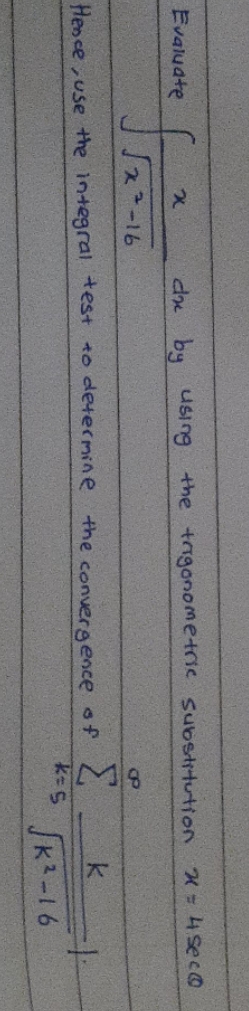 Evaluate ∫ x/√(x²-16) dx by using the trigonometric substitution x = 4 sec θ
Hence, use the integral test to determine the convergence of ∞∑k=5 k/√(k²-16) |.